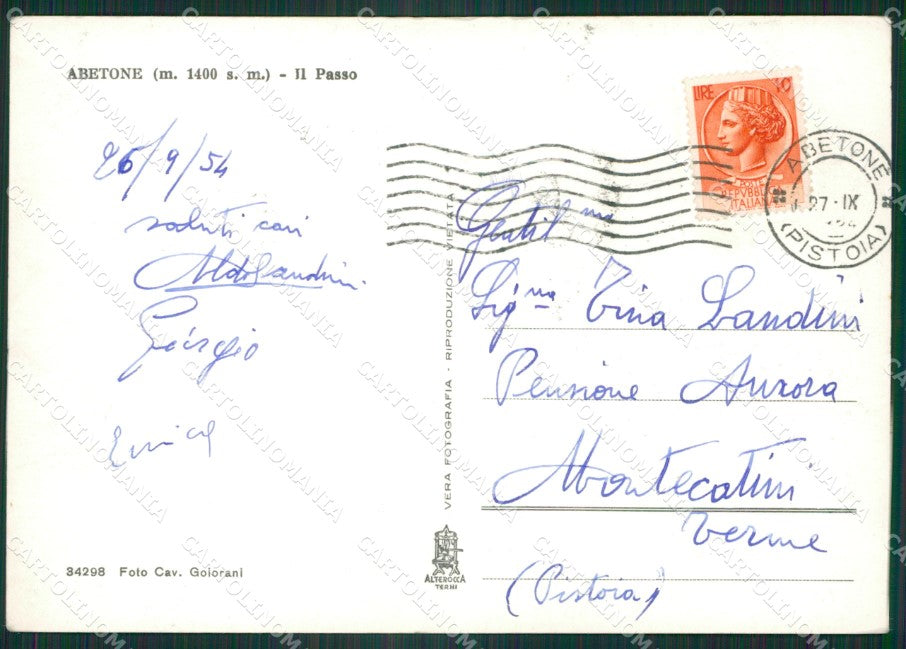 ABETONE (m. 1400 s. m.) - Il Passo
26/9/54
saluti cari
Aldo Landini
Giorgio
34298 Foto Cav. Goiorani
VERA FOTOGRAFIA - RIPRODUZIONE VIETATA
ALTEROCCA
TERNI
LIRE
POSTE
REPVBBLICA
ITALIANA
ABETONE
27·IX
(PISTOIA)
Gentil ma
Sig na Tina Landini
Pensione Aurora
Montecatini
Terme
(Pistoia)
CARTOLINOMANIA